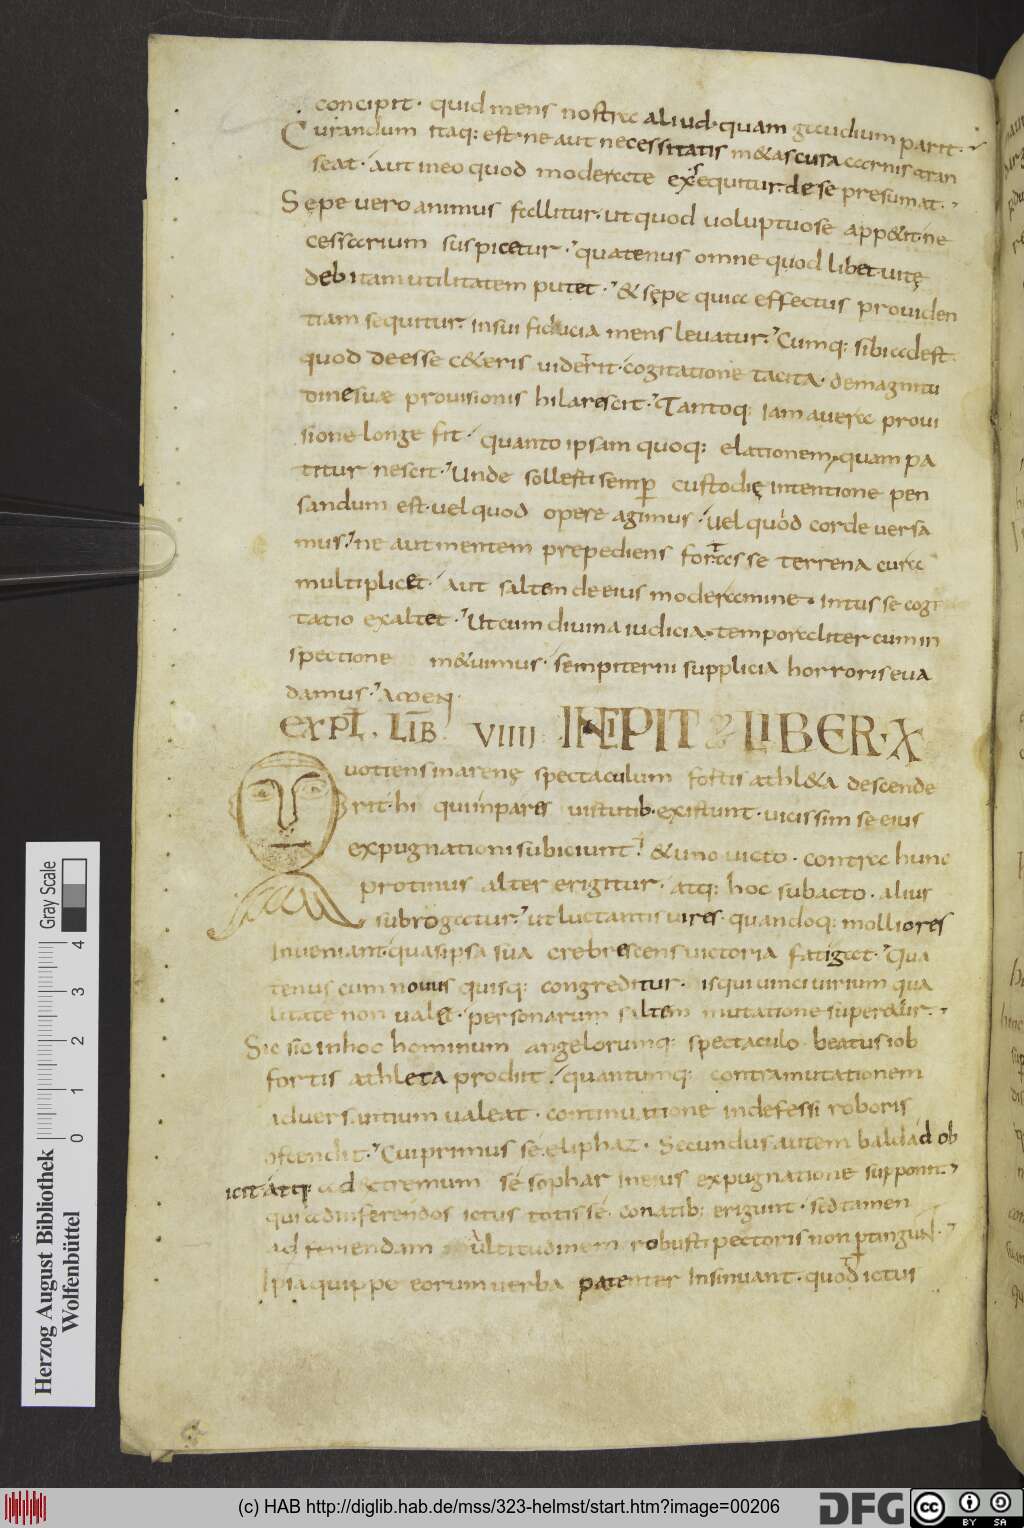 concipit · quid mens nostra aliud · quam gaudium parit ·
Curandum itaq: est · ne aut necessitatis metas cura accrnis tran
seat · aut in eo quod moderate exsequitur · de se presumat ·
Sepe vero animus fallitur · ut quod voluptuose appetit · ne
cessarium suspicetur · quatenus omne quod libet · vitę
debitam utilitatem putet · & sępe quia effectus providen
tiam sequitur · in sui fiducia mens levatur · Cumq: sibi adest
quod deesse c&eris viderit · cogitatione tacita · de magnitu
dine suæ provisionis hilarescit · Tantoq: iam a vera provi
sione longe fit · quanto ipsam quoq: elationem · quam pa
titur nescit · Unde sollesti semper custodię intentione pen
sandum est · vel quod opere agimus · vel quod corde versa
mus · ne aut mentem prepediens fortas se terrena cura
multiplicet · aut saltem de eius moderamine · intus se cogi
tatio exaltet · Ut cum divina iudicia · temporaliter cum in
spectione m&uimus · sempiterni supplicia horroris eva
damus · AMEN ·
EXPL · LIB VIIII INCIPIT LIBER · X
Quotiens in arenę spectaculum fortis athl&a descende
rit · hi qui inpares virtutib · existunt · vicissim se eius
expugnationi subiciunt · & uno victo · contra hunc
protinus alter erigitur · atq: hoc subacto · alius
subrogatur · ut luctantis vires · quandoq: molliores
Inveniant · quas ipsa sua crebrescens victoria fatiget · Qua
tenus cum novus quisq: congreditur · is qui vinci virium qua
litate non val& · personarum saltem mutatione superetur ·
Sic sic in hoc hominum angelorumq: spectaculo · beatus iob
fortis athleta prodiit · quantumq: contra mutationem
adversantium valeat · continuatione indefessi roboris
ostendit · Cui primus se eliphaz · Secundus autem baldad ob
icit atq: ad extremum se sophar in eius expugnatione supponit ·
qui ad inferendos ictus totis se conatib: erigunt · sed tamen
ad feriendam altitudinem robusti pectoris non pertingunt ·
Ipsa quippe eorum verba patenter insinuant · quod ictus
Gray Scale
4
3
2
1
0
Herzog August Bibliothek
Wolfenbüttel
(c) HAB http://diglib.hab.de/mss/323-helmst/start.htm?image=00206
DFG
cc
BY SA